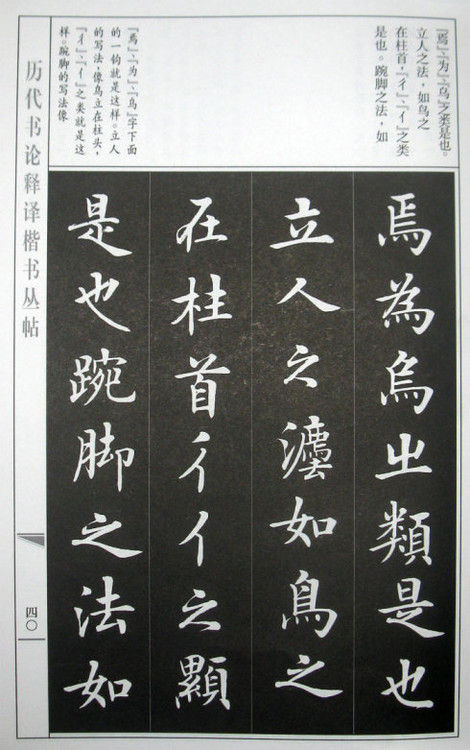 『焉』、『为』、『乌』之类是也。
立人之法，如鸟之
在柱首，『彳』、『亻』之类
是也。踠脚之法，如
『焉』、『为』、『乌』字下面
的一钩就是这样。立人
的写法，像鸟立在柱头，
『彳』、『亻』之类就是这
样。踠脚的写法像
焉為烏出類是也
立人之灋如鳥之
在柱首彳亻之顯
是也踠脚之法如
历代书论释译楷书丛帖
四〇